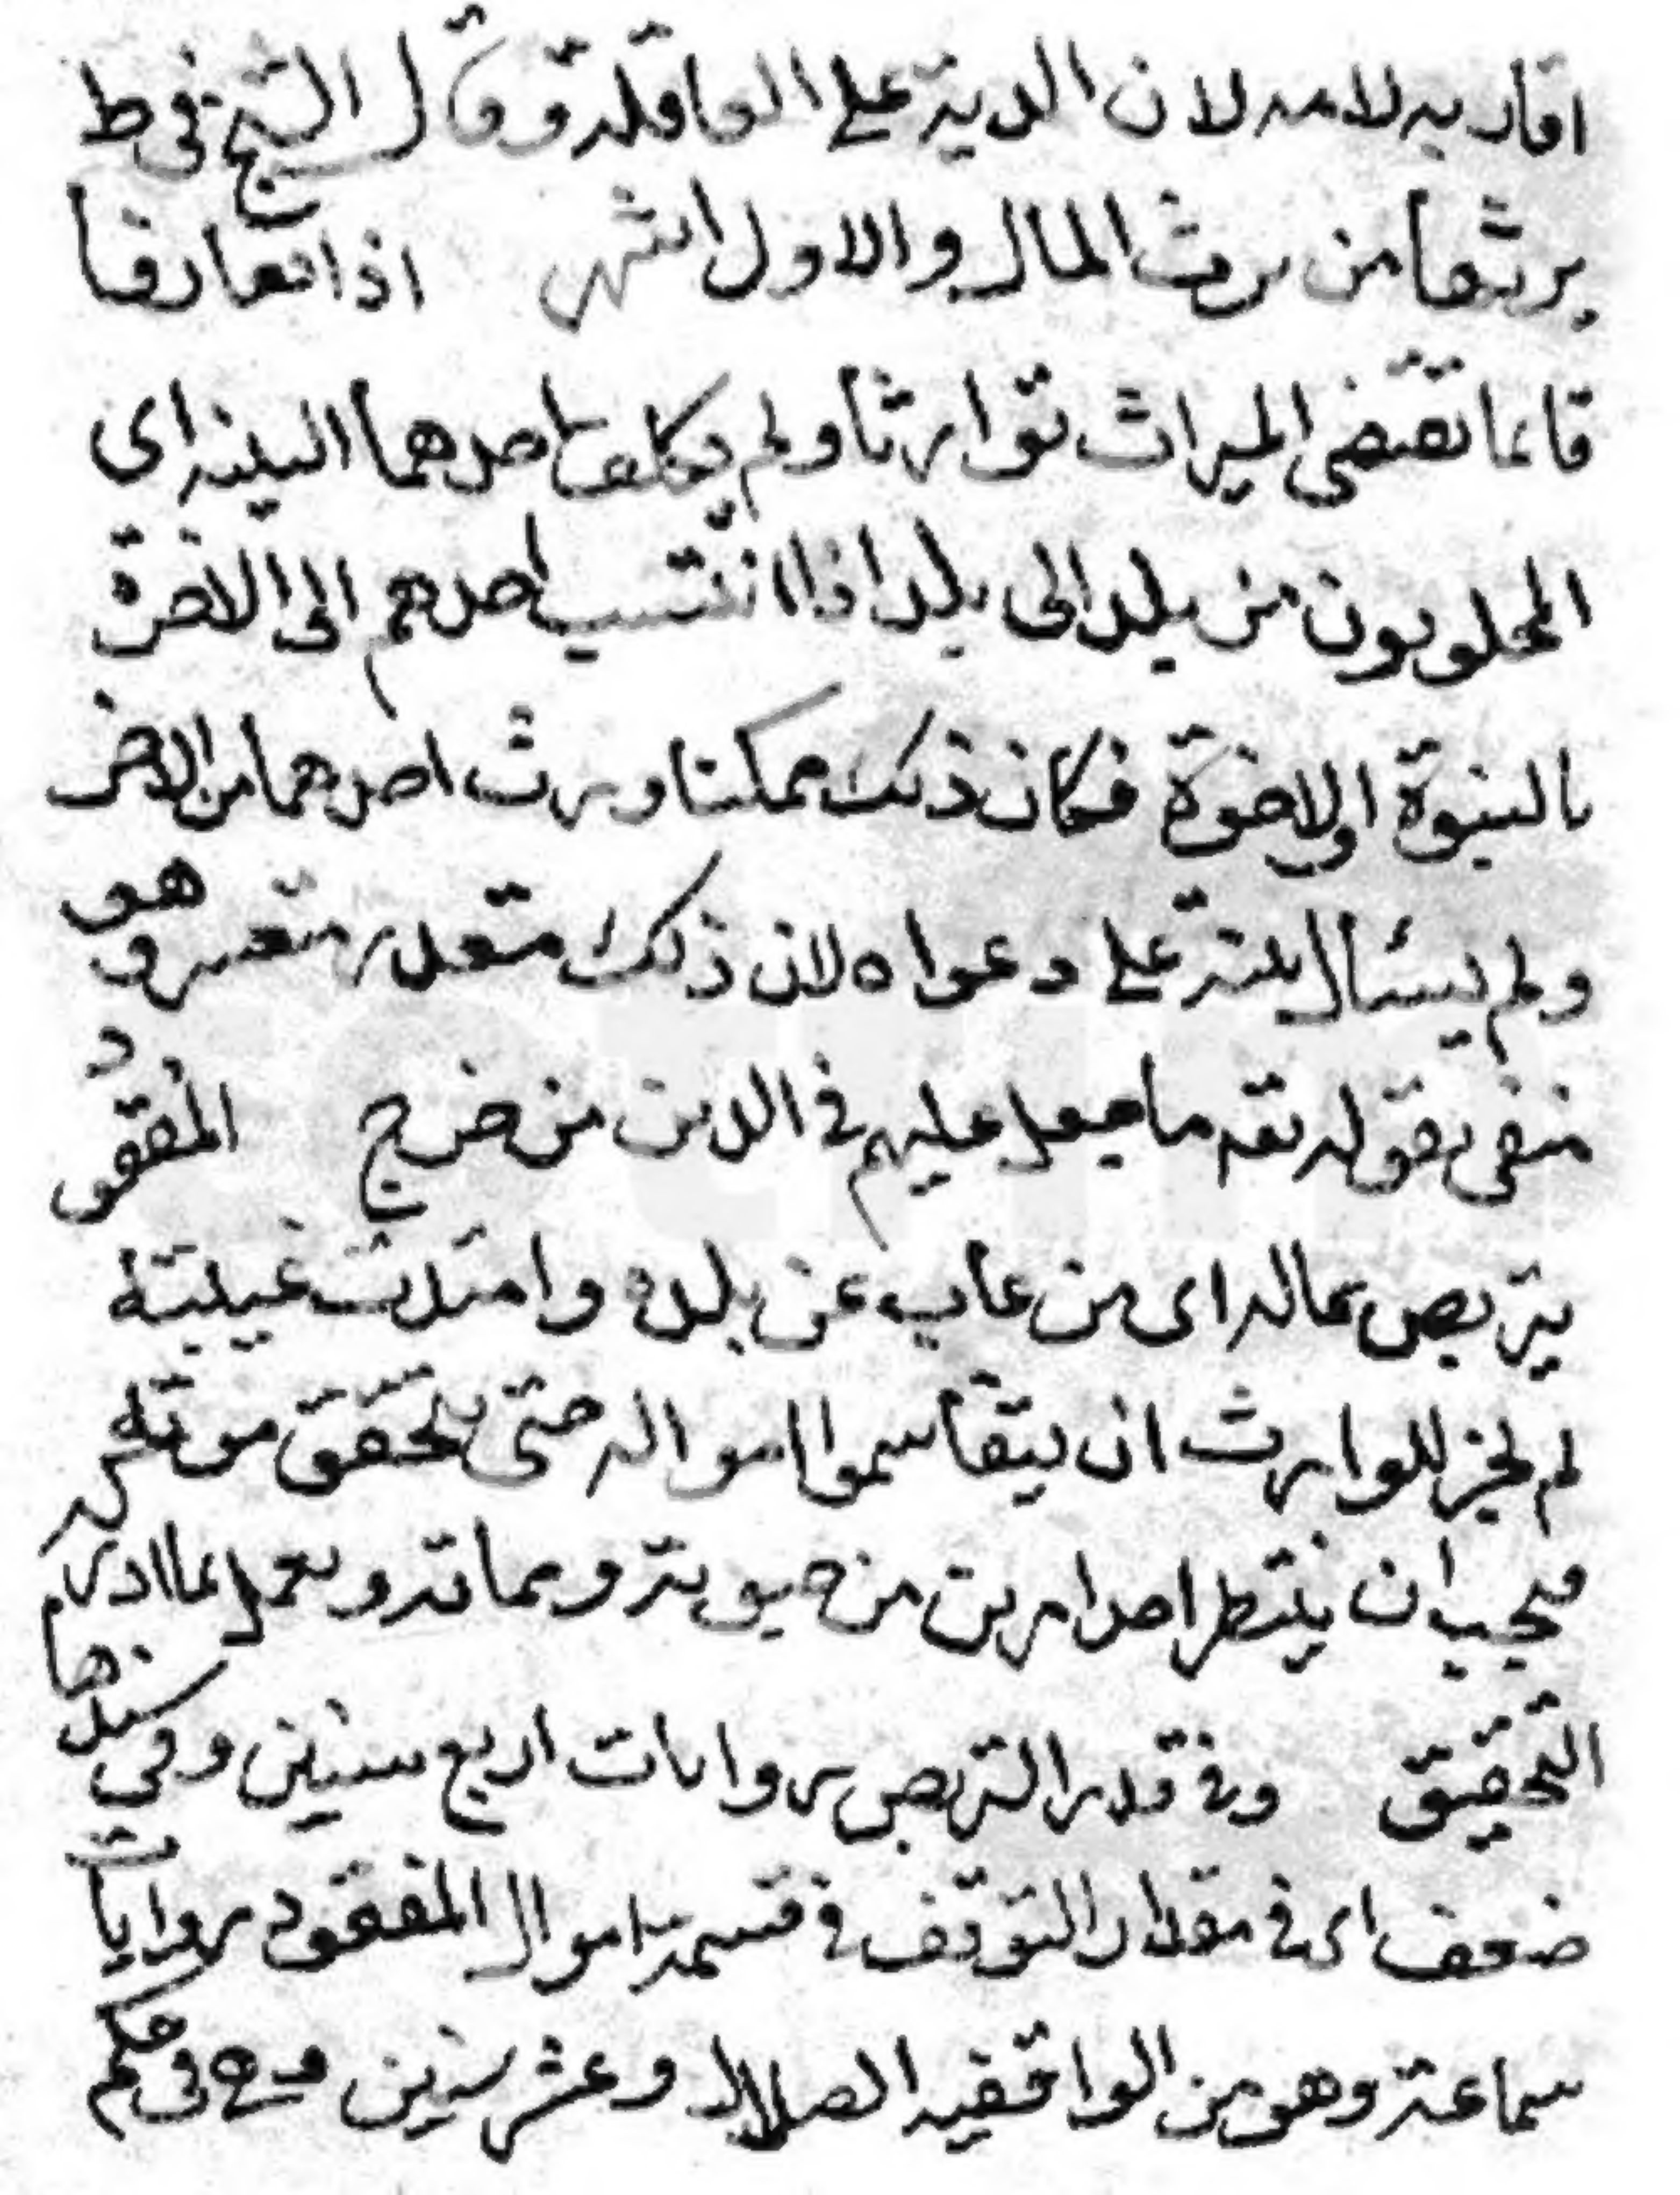 اقاربه لامه لان الدية على العاقلة وقال الشيخ في ط
يرثها من يرث المال والاول اشهر اذا تعارفا
قا بما تقتضى الميراث توارثا ولم يكلف احدهما البينة اى
المجلوبون من بلد الى بلد اذا انتسب احدهم الى الاخرة
بالبنوة او الاخوة فكان ذلك ممكنا ورث احدهما من الاخر
ولم يسئال بينة على دعواه لان ذلك متعذر متعسر وهو
منفى بقوله تعه ما جعل عليهم فى الدين من حرج المفقود
يتربص بماله اى من غاب عن بلده وامتدت غيبته
لم يجز للوارث ان يتقاسموا امواله حتى يتحقق موته
فيجب ان ينتظر احد امرين من حيوته ومماته ويعمل بما ادى
التحقيق وفى قدر التربص روايات اربع سنين وفى سندها
ضعف اى فى مقدار التوقف فى قسمة اموال المفقود روايات
سماعة وهو من الواقفيه الضلال وعشر سنين وهى فى حكم